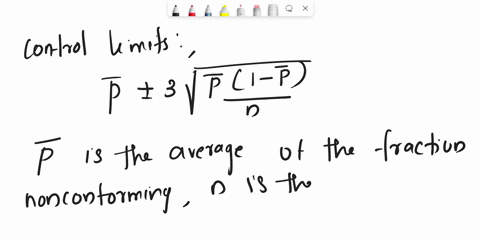 control limits:,
P̄ ± 3 √(P̄ (1-P̄) / n)
P̄ is the average of the fraction
nonconforming, n is the